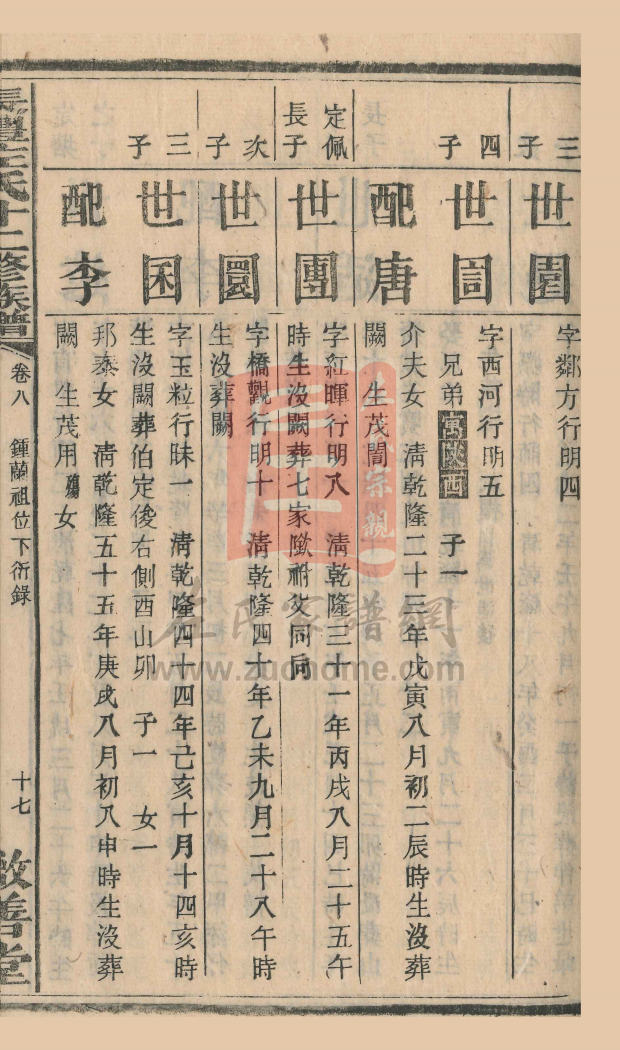 三子
世園
字鄰方行明四
四子
世訚
字西河行明五
兄弟寓陝西　子一
配唐
介夫女　清乾隆二十三年戊寅八月初二辰時生沒葬
闕　生茂誾
定佩長子
世團
字紅暉行明八　清乾隆三十一年丙戌八月二十五午
時生沒闕葬七家隞祔父同向
次子
世圜
字橋觀行明十　清乾隆四十年乙未九月二十八午時
生沒葬闕
三子
世困
字玉粒行昧一　清乾隆四十四年己亥十月十四亥時
生沒闕葬伯定後右側酉山卯　子一　女一
配李
邦泰女　清乾隆五十五年庚戌八月初八申時生沒葬
闕　生茂用殤女
長豐左氏十二修族譜
卷八　鍾蘭祖位下衍錄
十七
敬善堂
左氏家譜網
www.zuohome.com